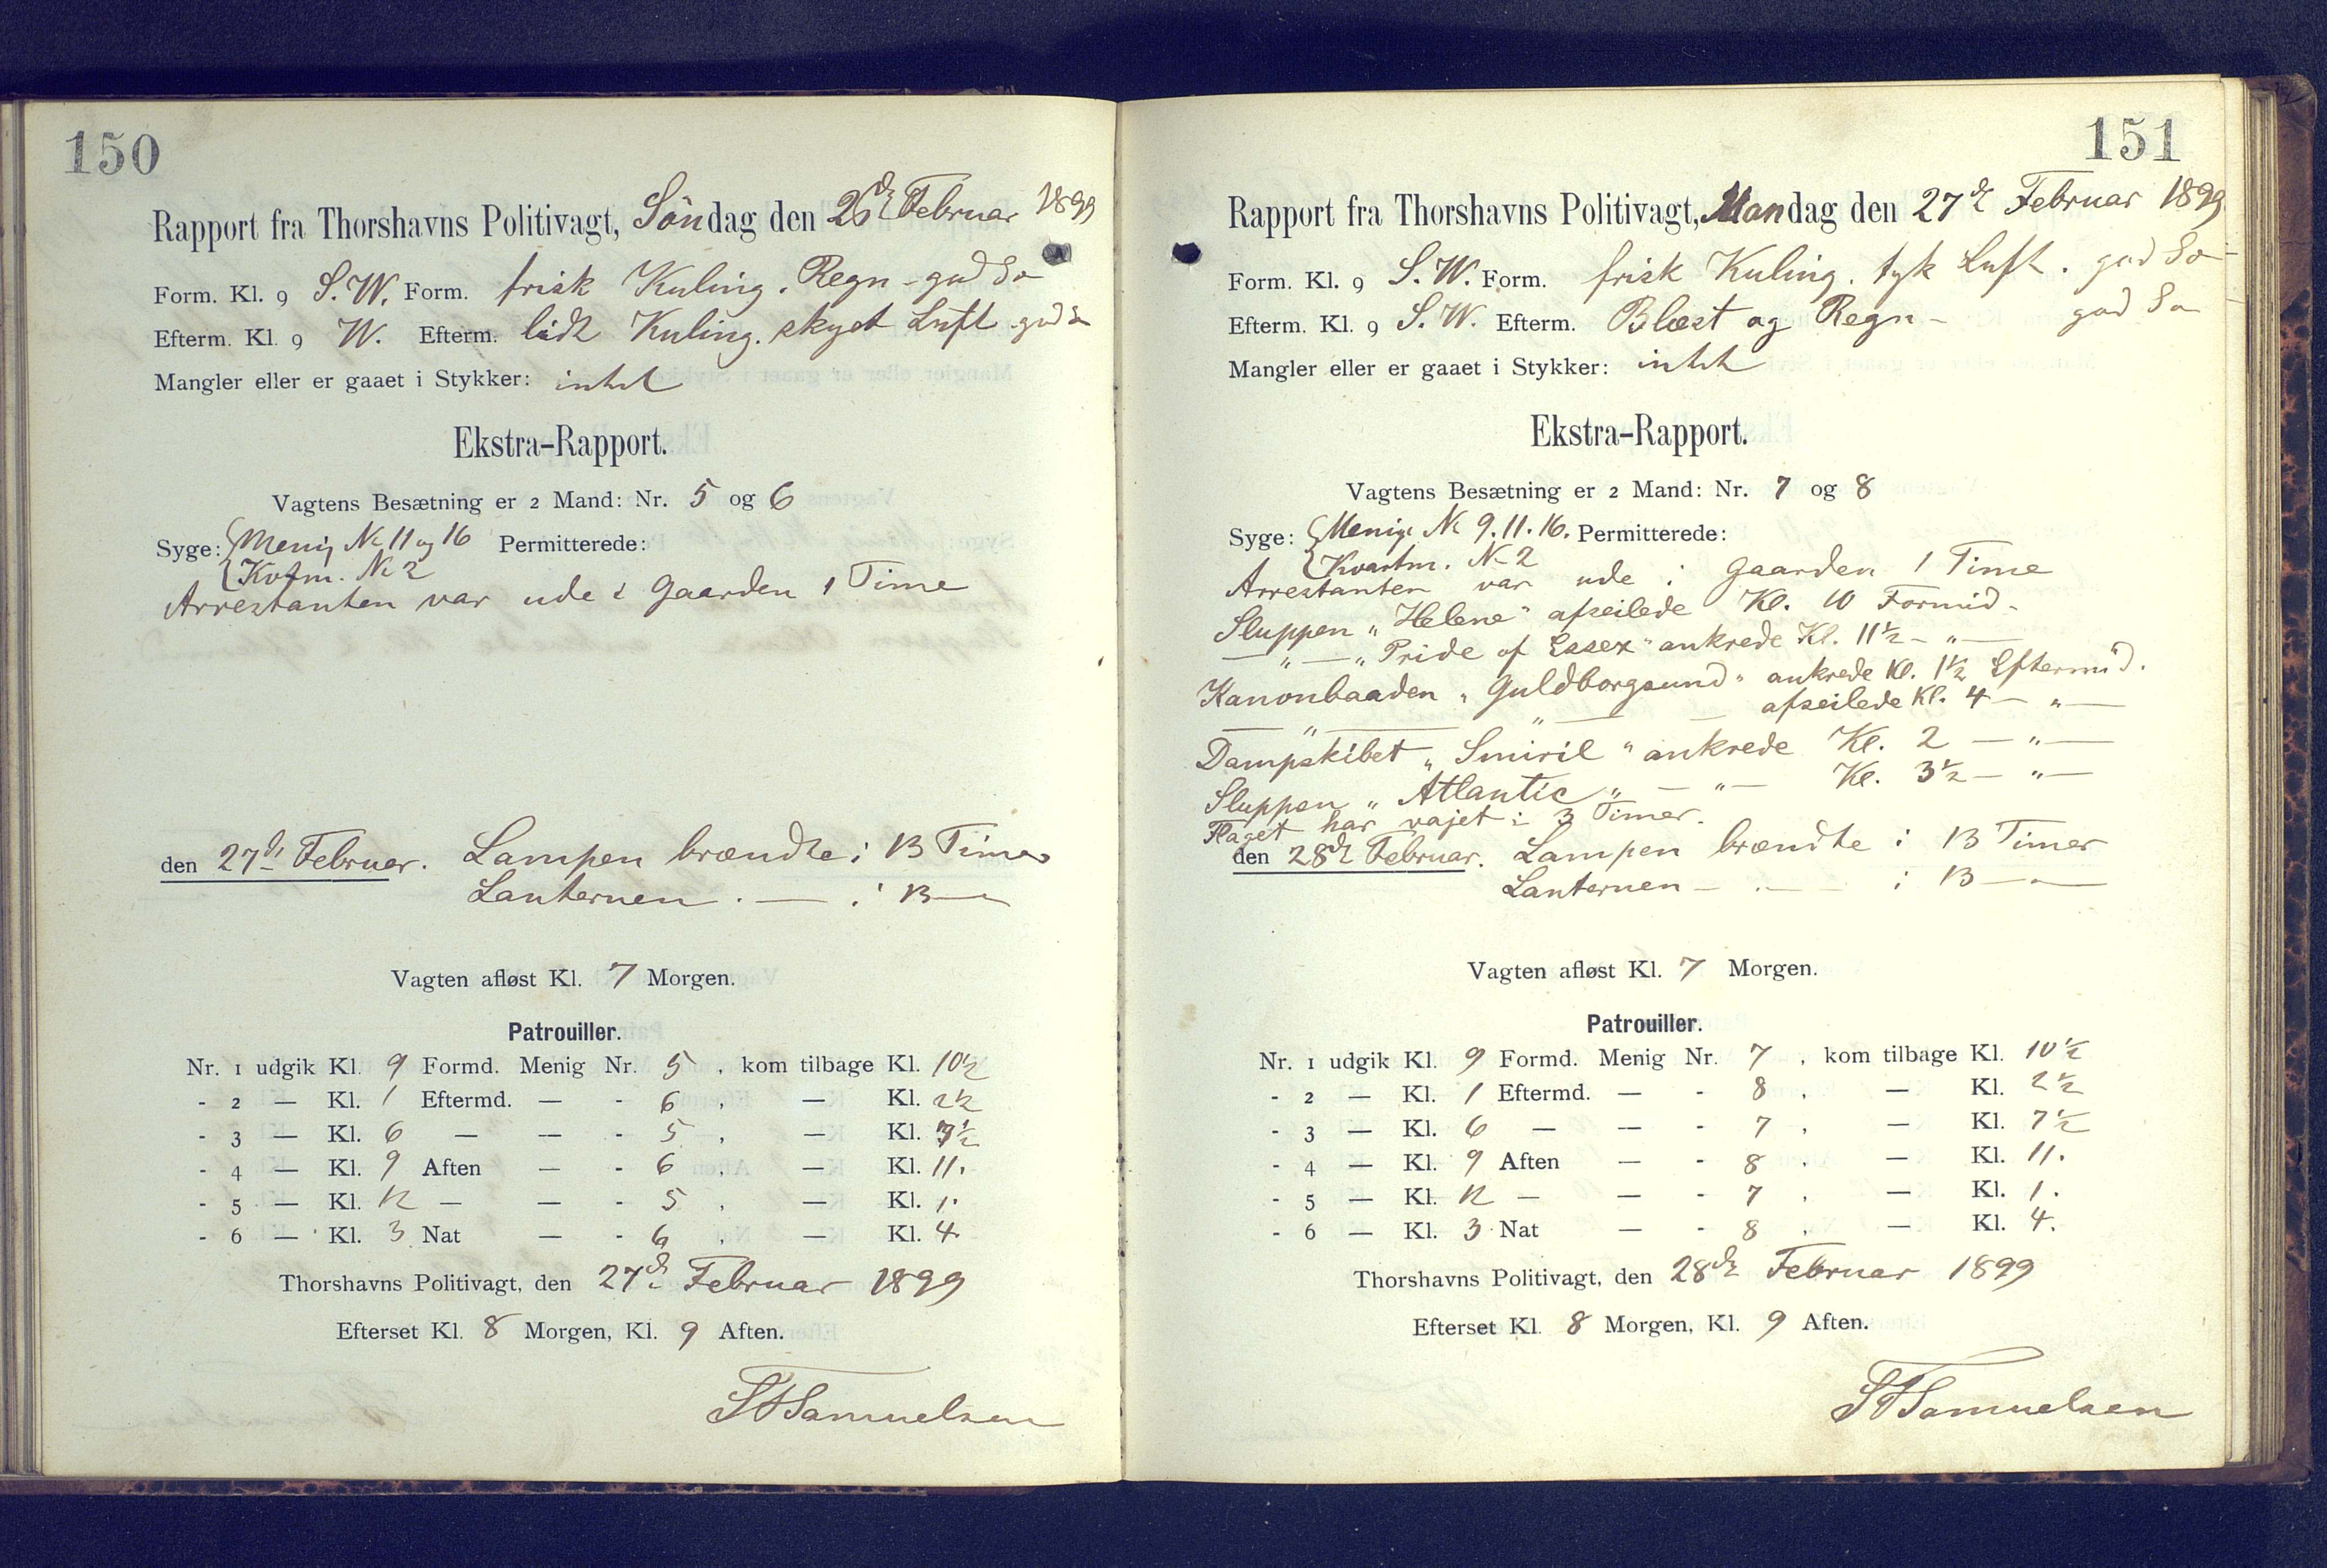 150
Rapport fra Thorshavns Politivagt, Søndag den 26de Februar 1899
Form. Kl. 9 S.W. Form. frisk Kuling. Regn - god So
Efterm. Kl. 9 W. Efterm. lidt Kuling. skyet Luft god So
Mangler eller er gaaet i Stykker: intet
Ekstra-Rapport.
Vagtens Besætning er 2 Mand: Nr. 5 og 6
Syge: Menig No 11 og 16 Permitterede:
Kvtm. No 2
Arrestanten var ude i Gaarden 1 Time
den 27de Februar. Lampen brændte i 13 Timer
Lanternen - i 13 -
Vagten afløst Kl. 7 Morgen.
Patrouiller.
Nr. 1 udgik Kl. 9 Formd. Menig Nr. 5, kom tilbage Kl. 10½
- 2 — Kl. 1 Eftermd. — - 6, — Kl. 2½
- 3 — Kl. 6 — — - 5, — Kl. 7½
- 4 — Kl. 9 Aften — - 6, — Kl. 11.
- 5 — Kl. 12 — — - 5, — Kl. 1.
- 6 — Kl. 3 Nat — - 6, — Kl. 4.
Thorshavns Politivagt, den 27de Februar 1899
Efterset Kl. 8 Morgen, Kl. 9 Aften.
Samuelsen
151
Rapport fra Thorshavns Politivagt, Mandag den 27de Februar 1899
Form. Kl. 9 S.W. Form. frisk Kuling. tyk Luft. god So
Efterm. Kl. 9 S.W. Efterm. Blæst og Regn - god So
Mangler eller er gaaet i Stykker: intet
Ekstra-Rapport.
Vagtens Besætning er 2 Mand: Nr. 7 og 8
Syge: Menige No 9. 11. 16. Permitterede:
Kvartm. No 2
Arrestanten var ude i Gaarden 1 Time
Sluppen "Helene" afseilede Kl. 10 Formid-
— " — "Pride of Essex" ankrede Kl. 11½ — " —
Kanonbaaden "Guldborgsund" ankrede Kl. 1½ Eftermid.
— " — " — afseilede Kl. 4 — " —
Dampskibet "Smiril" ankrede Kl. 2 — " —
Sluppen "Atlantic" — " — Kl. 3½ — " —
Flaget har vajet i 3 Timer.
den 28de Februar. Lampen brændte i 13 Timer
Lanternen — " — i 13 — " —
Vagten afløst Kl. 7 Morgen.
Patrouiller.
Nr. 1 udgik Kl. 9 Formd. Menig Nr. 7, kom tilbage Kl. 10½
- 2 — Kl. 1 Eftermd. — - 8, — Kl. 2½
- 3 — Kl. 6 — — - 7, — Kl. 7½
- 4 — Kl. 9 Aften — - 8, — Kl. 11.
- 5 — Kl. 12 — — - 7, — Kl. 1.
- 6 — Kl. 3 Nat — - 8, — Kl. 4.
Thorshavns Politivagt, den 28de Februar 1899
Efterset Kl. 8 Morgen, Kl. 9 Aften.
Samuelsen